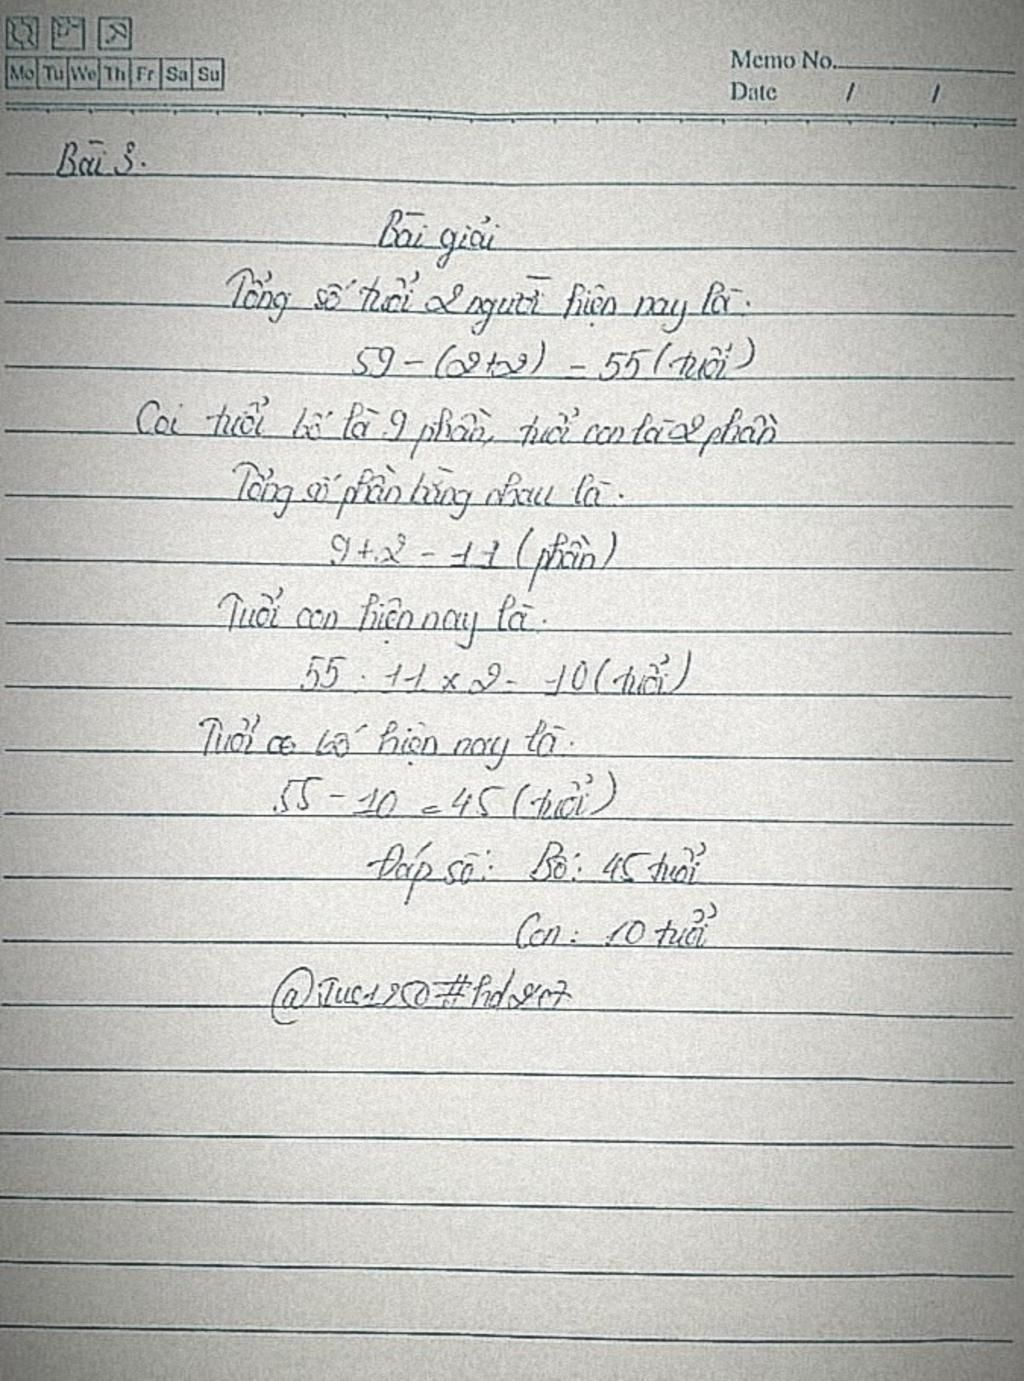 Mo Tu We Th Fr Sa Su
Memo No.
Date / /
Bài 3.
Bài giải
Tổng số tuổi 2 người hiện nay là:
59 - (2+2) = 55 (tuổi)
Coi tuổi bố là 9 phần, tuổi con là 2 phần
Tổng số phần bằng nhau là:
9 + 2 = 11 (phần)
Tuổi con hiện nay là:
55 : 11 x 2 = 10 (tuổi)
Tuổi bố hiện nay là:
55 - 10 = 45 (tuổi)
Đáp số: Bố: 45 tuổi
Con: 10 tuổi